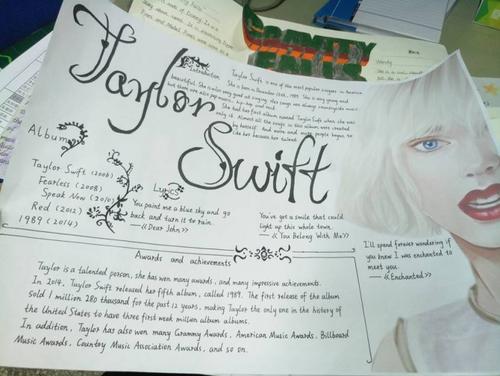 Taylor
Swift
Introduction
Taylor Swift is one of the most popular singers in America
She is born in December 13th, 1989. She is very young and
beautiful. She is also very good at singing. Her songs are always
but there are also pop music, hip-hop and rock
She had her first album named Taylor Swift when she was
only 16. Almost all the songs in this album were created
by herself. And more and more people began to
like her because her talent.
Album
Taylor Swift (2006)
Fearless (2008)
Speak Now (2010)
Red (2012)
1989 (2014)
Lyrics
You paint me a blue sky and go
back and turn it to rain.
—《Dear John》
You've got a smile that could
light up this whole town.
—《You Belong With Me》
I'll spend forever wondering if
you knew I was enchanted to
meet you.
—《Enchanted》
Awards and achievements
Taylor is a talented person, she has won many awards, and many impressive achievements.
In 2014, Taylor Swift released her fifth album, called 1989. The first release of the album
sold 1 million 280 thousand for the past 12 years, making Taylor the only one in the history of
the United States to have three first week million album albums.
In addition, Taylor has also won many Grammy Awards, American Music Awards, Billboard
Music Awards, Country Music Association Awards, and so on.
GRAVITY
FALLS